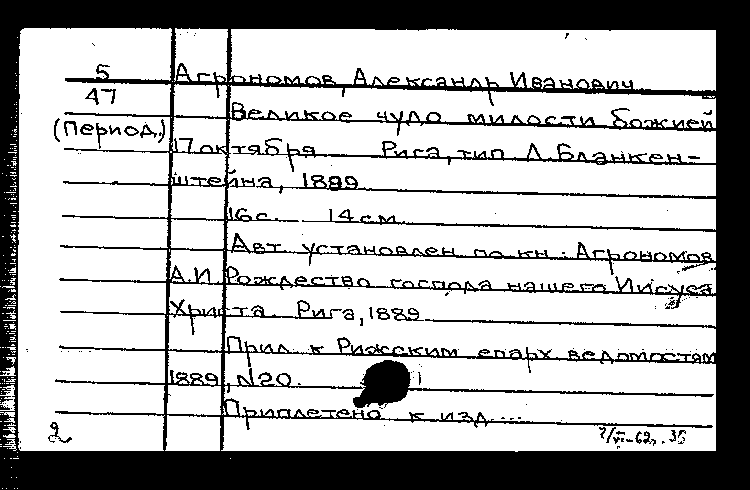 5 Агрономов, Александр Иванович
47 Великое чудо милости божией
(Период.) 17 октября Рига, тип. Л. Бланкен-
штейна, 1889
16 с. 14 см.
Авт. установлен по кн.: Агрономов
А.И. Рождество господа нашего Иисуса
Христа. Рига, 1889
Прил. к Рижским епарх. ведомостям
1889, N20.
Приплетено к изд. ...
2